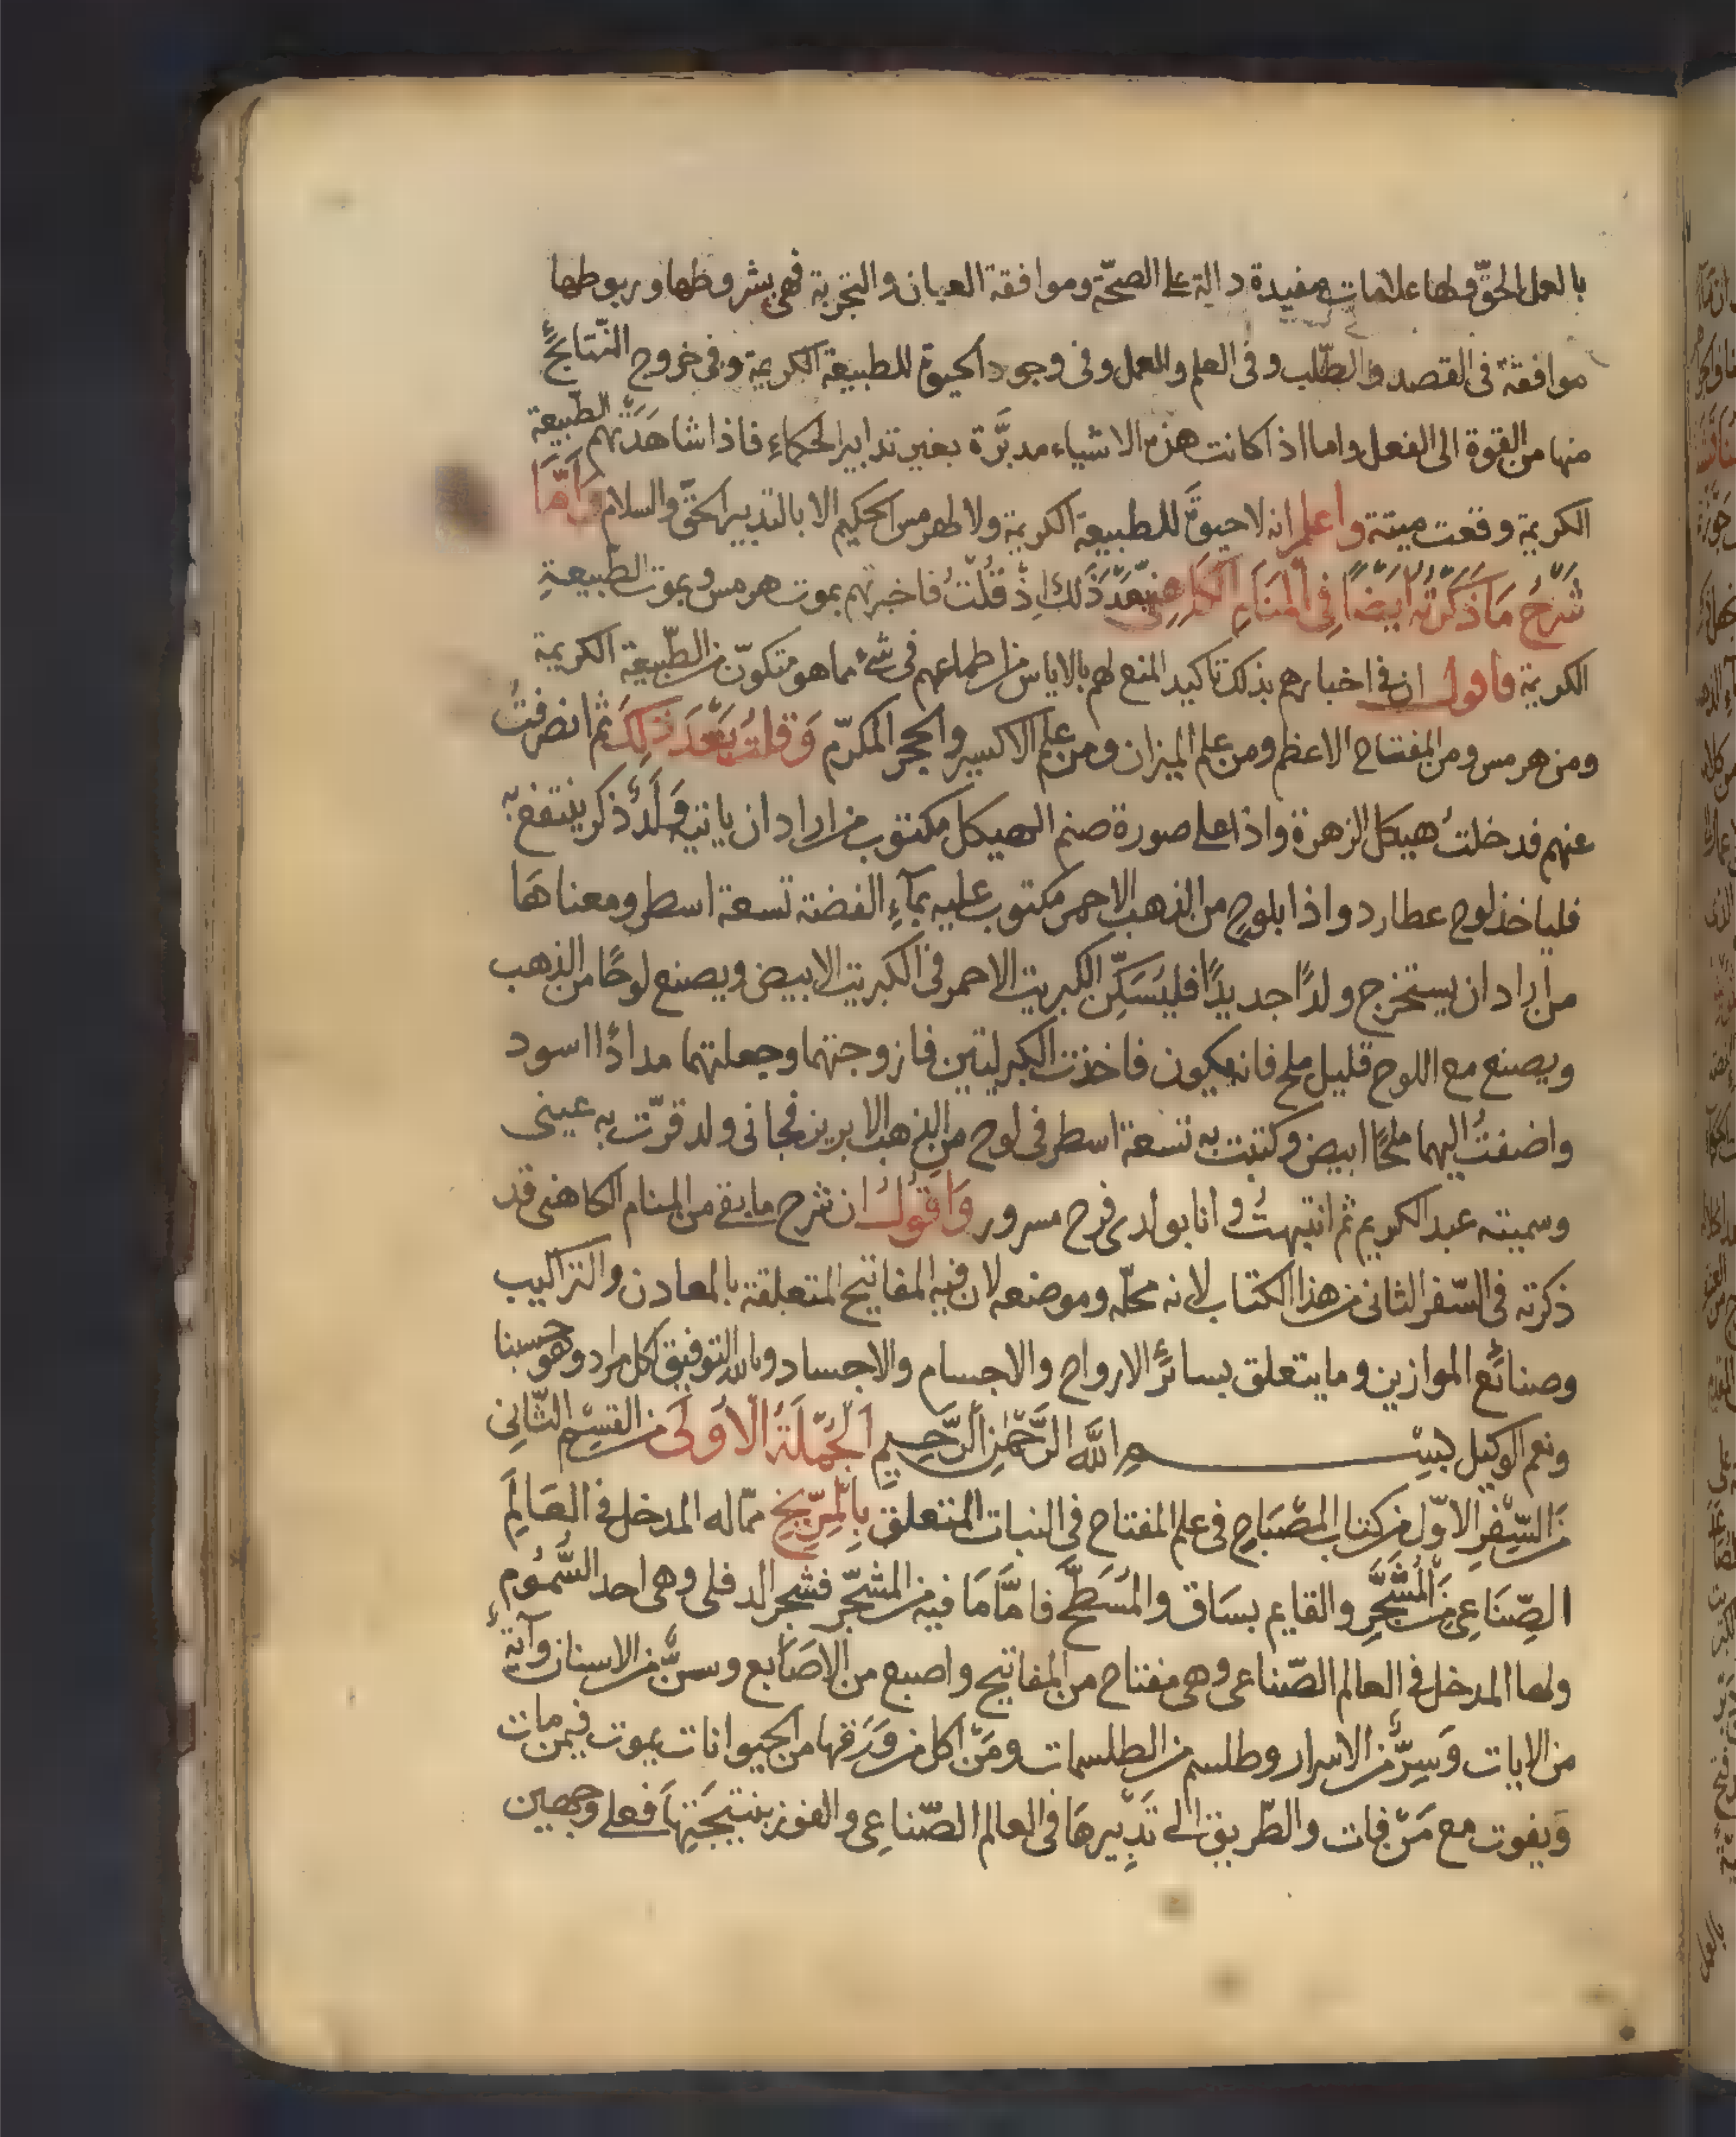 بالعمل الحقّ ولها علامات مفيدة دالة على الصحّة وموافقة العيان والتجربة فهى بشروطها وربوطها
موافقة فى القصد والطّلب وفى العلم والعمل وفى وجود الحيوة للطبيعة الكريمة وفى خروج النّتائج
منها من القوة الى الفعل واما اذا كانت هذه الاشياء مدبّرة بغير تدابير الحكماء فاذا شاهدتهم الطّبيعة
الكريمة وقعت ميتة واعلم انه لا حيوة للطبيعة الكريمة ولا لهرمس الحكيم الا بالتدبير الحقّ والسلام وَامَّا
شَرْحُ مَا ذَكَرْتُه اَيْضًا فِى الْمَنَامِ الْكَاهِنِى بَعْدَ ذَلِكَ اِذْ قُلْتُ فاخبرتهم بموت هرمس وبموت الطّبيعةِ
الكريمة فاقول ان فى اخبارهم بذلك تاكيد المنع لهم بالاياس من اطماعهم فى شىء مما هو متكوّن من الطّبيعة الكريمة
ومن هرمس ومن المفتاح الاعظم ومن علم الميزان ومن علم الاكسير والحجر المكرّم وَقلتُ بَعْدَ ذَلِكَ ثم انصرفتُ
عنهم فدخلتُ هيكل الزهرة واذا على صورة صنم الهيكل مكتوب من اراد ان ياتيه وَلَدٌ ذكر ينتفع به
فلياخذ لوح عطارد واذا بلوح من الذهب الاحمر مكتوب عليه بمآءِ الفضة تسعة اسطر ومعناهَا
من اراد ان يستخرج ولدًا جديدًا فليُسَكِّن الكبريت الاحمر فى الكبريت الابيض ويصنع لوحًا من الذهب
ويصنع مع اللوح قليل ملح فانه يكون فاخذت الكبريتين فازوجتهما وجعلتهما مدادًا اسود
واضفتُ اليهما ملحًا ابيض وكتبت به تسعة اسطر فى لوح من الذهب الابريز فجانى ولد قرّت به عينى
وسميته عبد الكريم ثم انتبهتُ وانا بولدى فرح مسرور وَاقولُ ان شرح ما بقى من المنام الكاهنى قد
ذكرته فى السّفر الثانى من هذا الكتاب لانه محلّه وموضعه لان فيه المفاتيح المتعلقة بالمعادن والتراكيب
وصنائع الموازين وما يتعلق بسائر الارواح والاجسام والاجساد وبالله التوفيق لكل مراد وهو حسبنا
ونعم الوكيل بسم اللَّهِ الرَّحْمٰنِ الرَّحِيمِ اَلْجُمْلَةُ الْاُوْلَى من القِسْمِ الثّانِى
من السِّفْرِ الاوّل من كتاب المصْبَاحِ فى علم المفتاح فى النبات المتعلق بِالْمِرّيخ ممّا له المدخل فى العَالَمِ
الصِّنَاعِى مِنَ الْمُشَجَّرِ والقايم بسَاق والمُسَطَّح فامّا مَا فيه من المشجّر فشجر الدفلى وهى احد السُّمُومِ
ولها المدخل فى العالم الصّناعى وهى مفتاح من المفاتيح واصبع من الاصَابع وسنٌّ من الاسنان وآيةٌ
من الايات وَسِرٌّ من الاسرار وطلسم من الطلسمات ومَنْ اكل من وَرَقها من الحيوانات يموت فيمن مات
وَيفوت مع مَنْ فات والطّريق الى تَدْبِيرهَا فى العالم الصّناعِى والفوز بنتيجَتِهَا فعلى وجهين